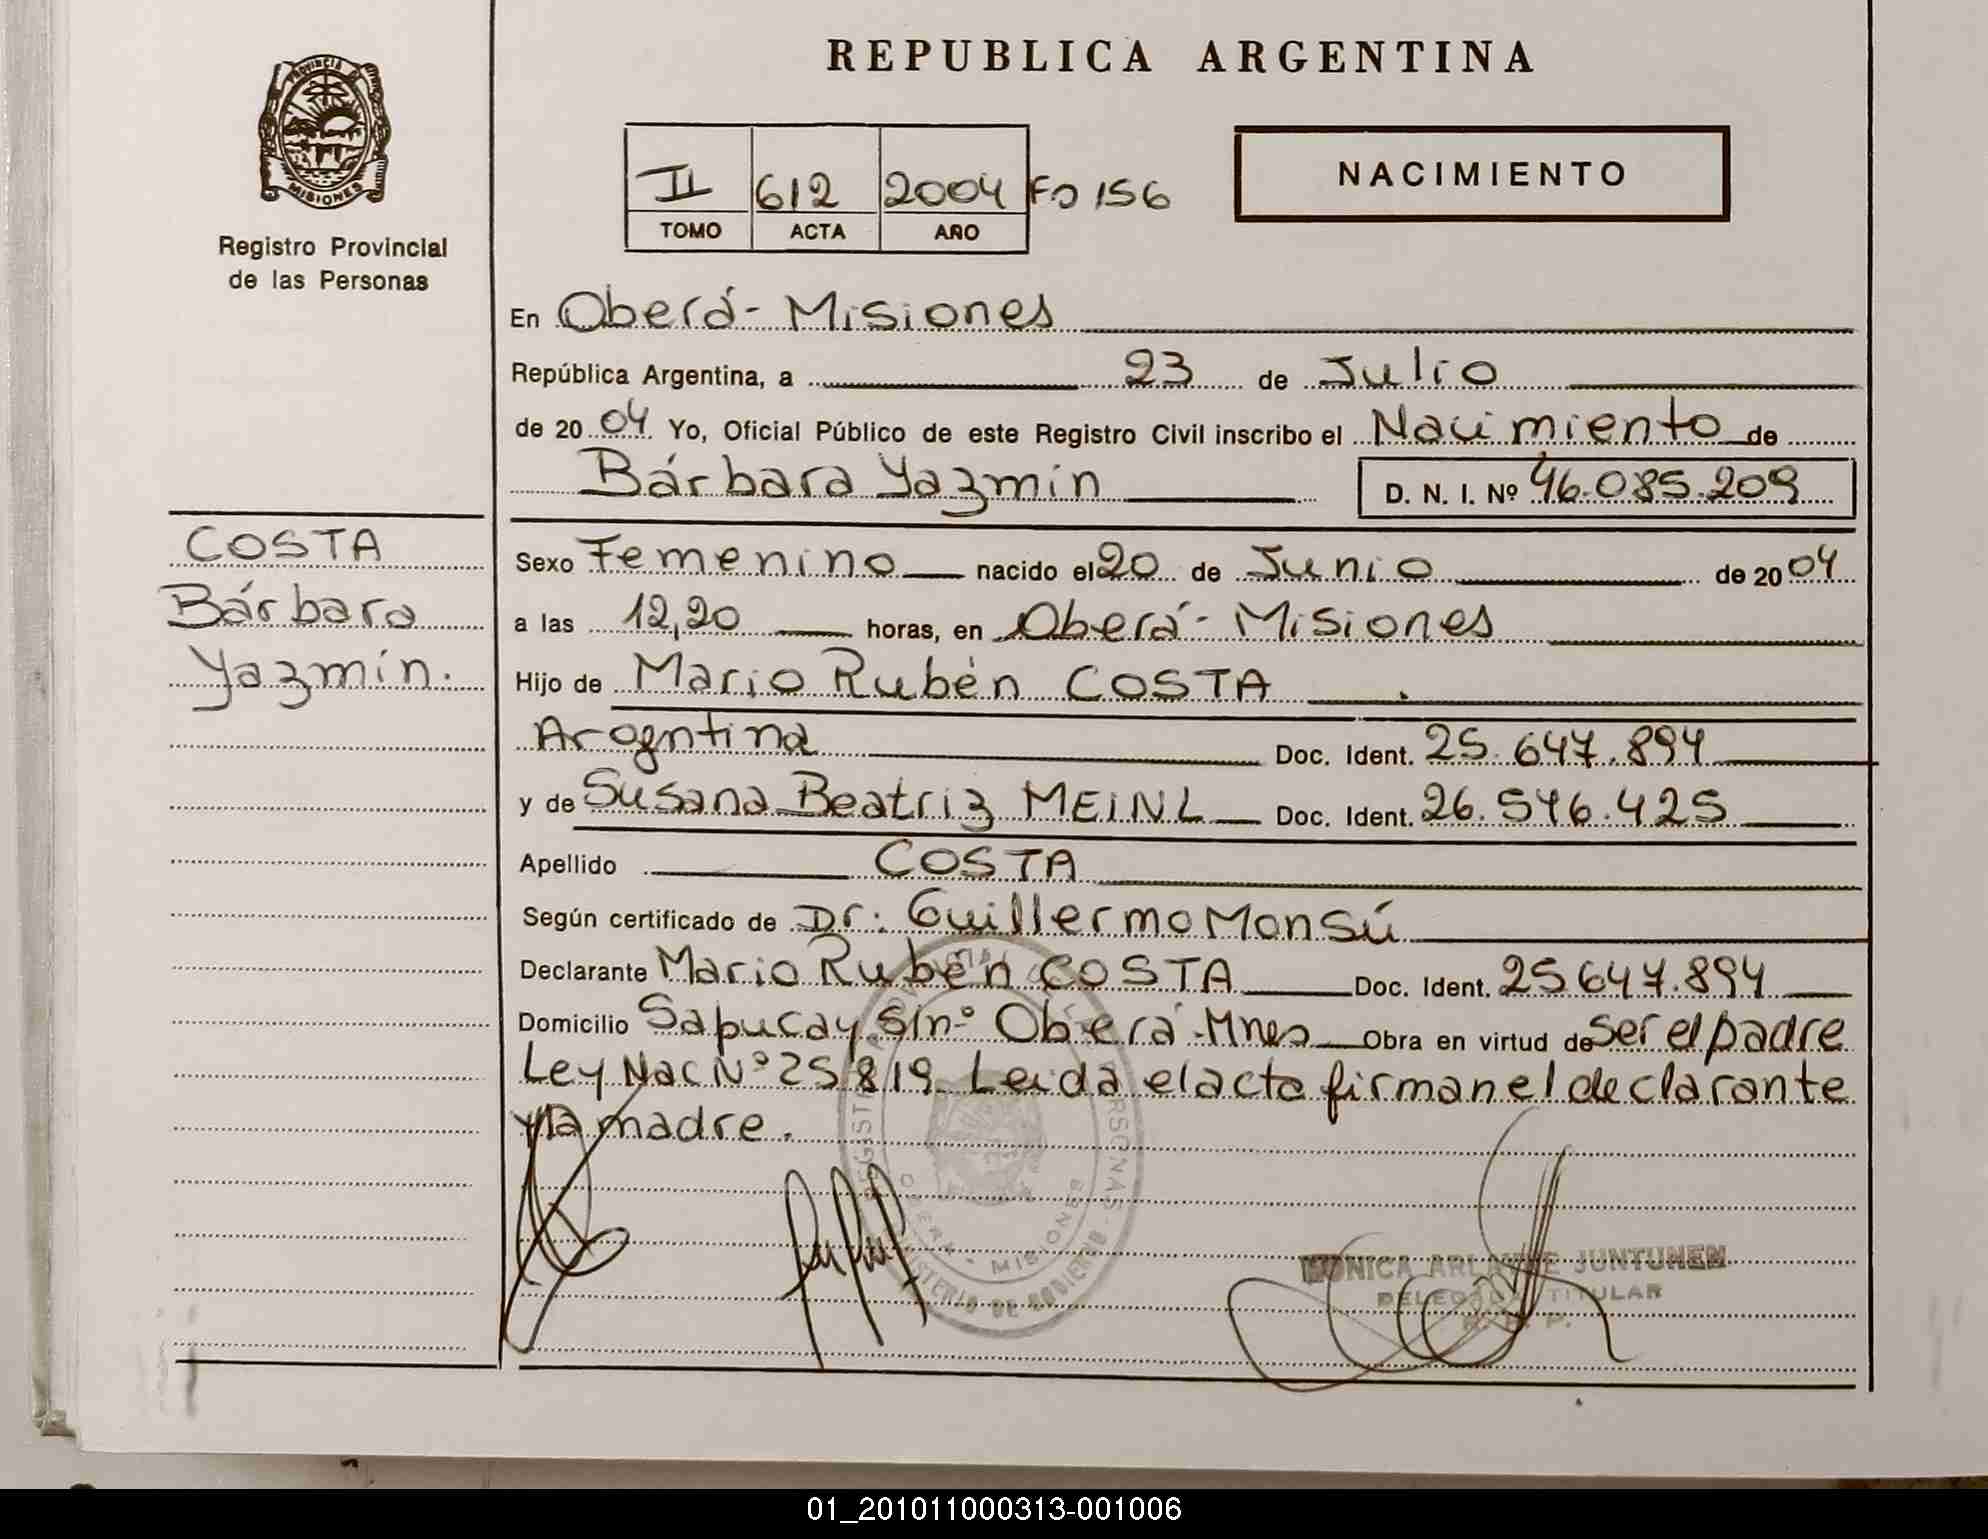 REPUBLICA ARGENTINA
PROVINCIA DE
MISIONES
Registro Provincial
de las Personas
II 612 2004 Fo 156
TOMO ACTA AÑO
NACIMIENTO
En Oberá - Misiones
República Argentina, a 23 de Julio
de 2004 Yo, Oficial Público de este Registro Civil inscribo el Nacimiento de
Bárbara Yazmín D. N. I. Nº 46.085.209
COSTA
Bárbara
Yazmín.
Sexo Femenino nacido el 20 de Junio de 2004
a las 12,20 horas, en Oberá - Misiones
Hijo de Mario Rubén COSTA
Arogntina Doc. Ident. 25.647.894
y de Susana Beatriz MEINL Doc. Ident. 26.546.425
Apellido COSTA
Según certificado de Dr: Guillermo Monsú
Declarante Mario Rubén COSTA Doc. Ident. 25647.894
Domicilio Sapucay S/nº Oberá - Mnes Obra en virtud de ser el padre
Ley Nac Nº 25819. Leida el acta firman el declarante
y la madre.
OBERA - MISIONES
MINISTERIO DE GOBIERNO
MONICA ARLAYNE JUNTUNEN
DELEGADA TITULAR
01_201011000313-001006